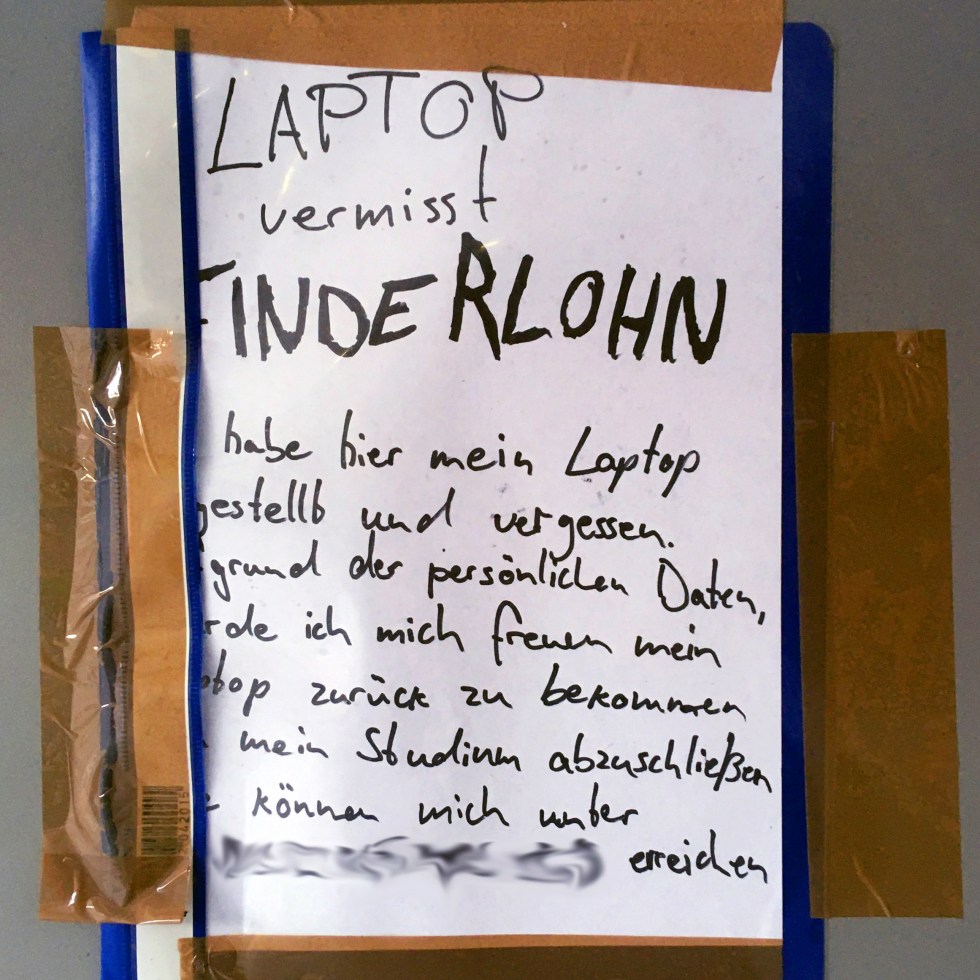 LAPTOP
vermisst
FINDERLOHN
habe hier mein Laptop
gestellt und vergessen.
grund der persönlichen Daten,
rde ich mich freuen mein
ptop zurück zu bekommen
mein Studium abzuschließen
können mich unter
erreichen
042015